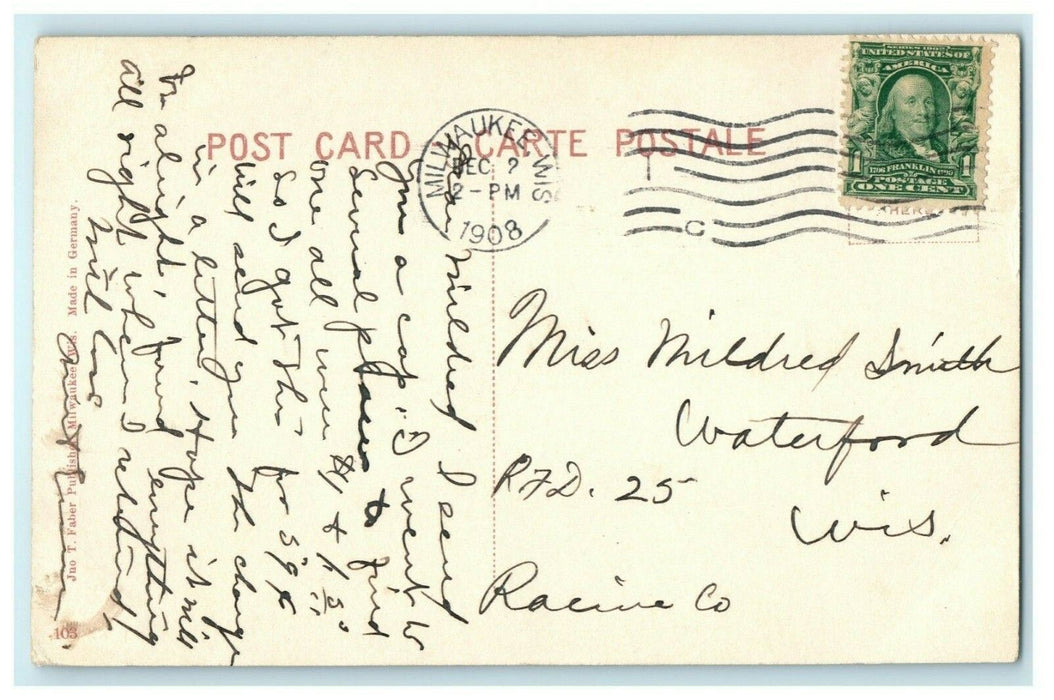 POST CARD
CARTE POSTALE
MILWAUKEE WIS
DEC 2
2-PM
1908
C
SERIES 1902
UNITED STATES OF
AMERICA
1706 FRANKLIN 1790
POSTAGE
1 ONE CENT 1
HERE
Mildred I send
you a cap. I went to
Several places to find
one all were $1 & $1.50
So I got this for 59¢
will send you the change
in a letter. Hope it will
be alright. found everything
all right when I returned.
with love
Miss Mildred Smith
Waterford
RFD. 25
Wis.
Racine Co
Jno T. Faber Publisher Milwaukee, Wis. Made in Germany.
103